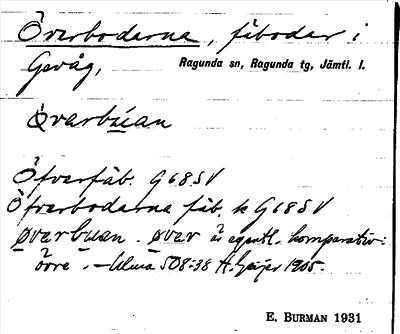 Överbodarna, fäbodar i
Gevåg, Ragunda sn, Ragunda tg, Jämtl. l.
øvarbúan
Öfverfäb. G 68 SV
Öfverbodarna fäb. k G 68 SV
øverbuan. øver är egentl. komparativ:
övre. — Ulma 508:38 H. Geijer 1905.
E. BURMAN 1931